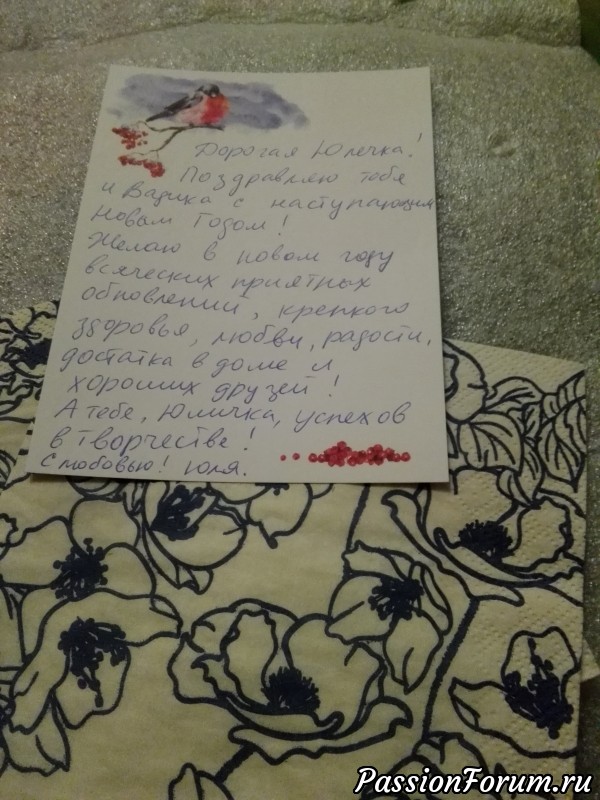 Дорогая Юлечка!
Поздравляю тебя
и Вадика с наступающим
Новым Годом!
Желаю в новом году
всяческих приятных
обновлений, крепкого
здоровья, любви, радости,
достатка в доме и
хороших друзей!
А тебе, Юличка, успехов
в творчестве!
С любовью! Юля.
PassionForum.ru